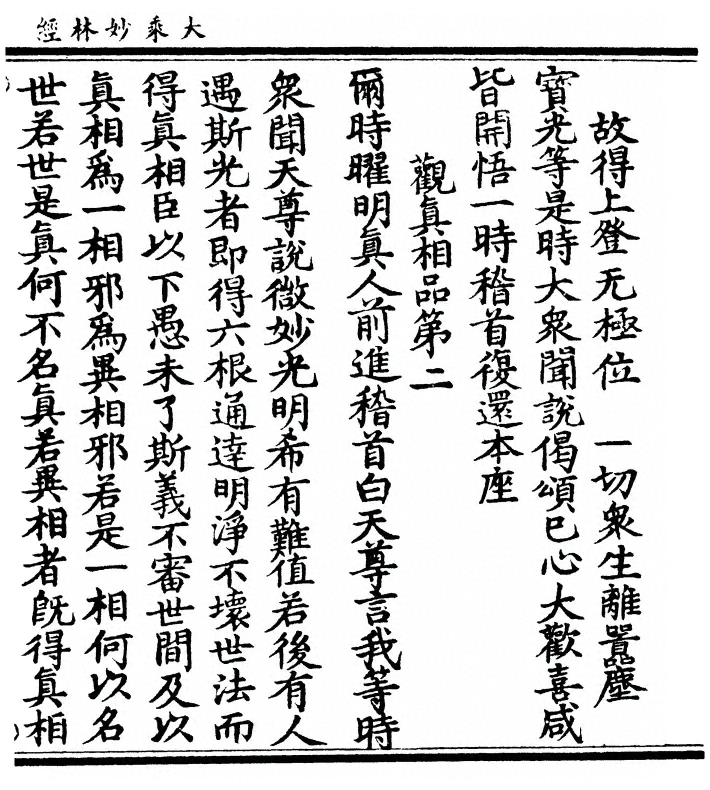 大乘妙林經
故得上登无極位　一切衆生離囂塵
寶光等是時大衆聞說偈頌已心大歡喜咸
皆開悟一時稽首復還本座
觀眞相品第二
爾時曜明眞人前進稽首白天尊言我等時
衆聞天尊說微妙光明希有難值若後有人
遇斯光者即得六根通達明淨不壞世法而
得眞相臣以下愚未了斯義不審世間及以
眞相爲一相邪爲異相邪若是一相何以名
世若世是眞何不名眞若異相者旣得眞相